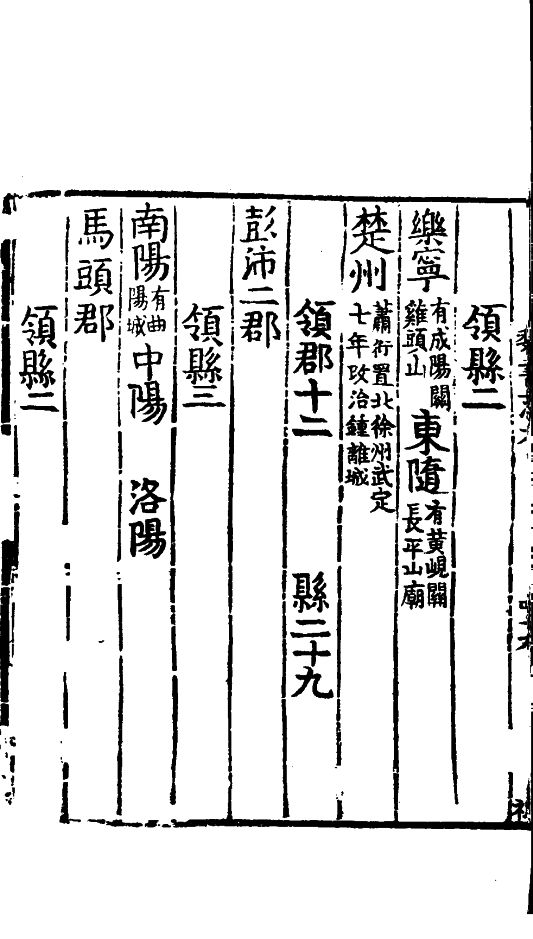 領縣二
樂寧有成陽關雞頭山東隨有黃峴關長平山廟
楚州蕭衍置北徐州武定七年攺治鍾離城
領郡十二縣二十九
彭沛二郡
領縣三
南陽有曲陽城中陽洛陽
馬頭郡
領縣二